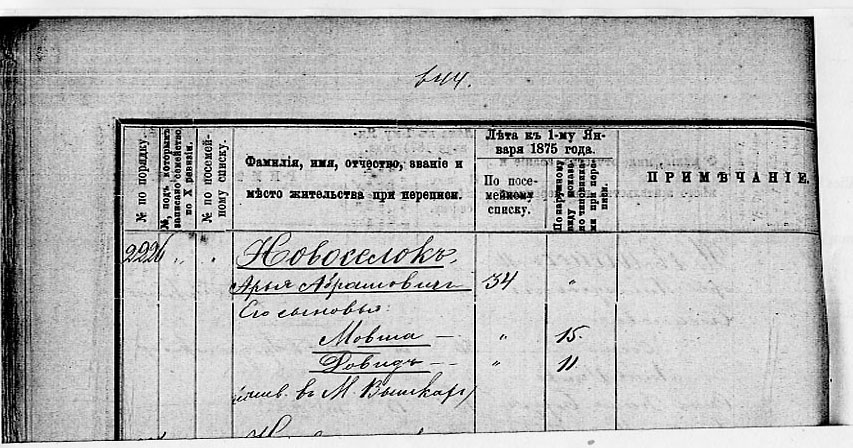 644.
№ по порядку
№, подъ которымъ записано семейство по X ревизіи.
№ по посемейному списку.
Фамилія, имя, отчество, званіе и
мѣсто жительства при переписи.
Лѣта къ 1-му Ян-
варя 1875 года.
По посе-
мейному
списку.
По наружному
виду показа-
но чиновника-
ми при пере
писи.
ПРИМѢЧАНІЕ.
2226 „ „ Новоселокъ,
Арья Абрамовичъ 34 „
Его сыновья:
Мовша — „ 15.
Довидъ — „ 11
(жив. въ М. Вышкахъ)